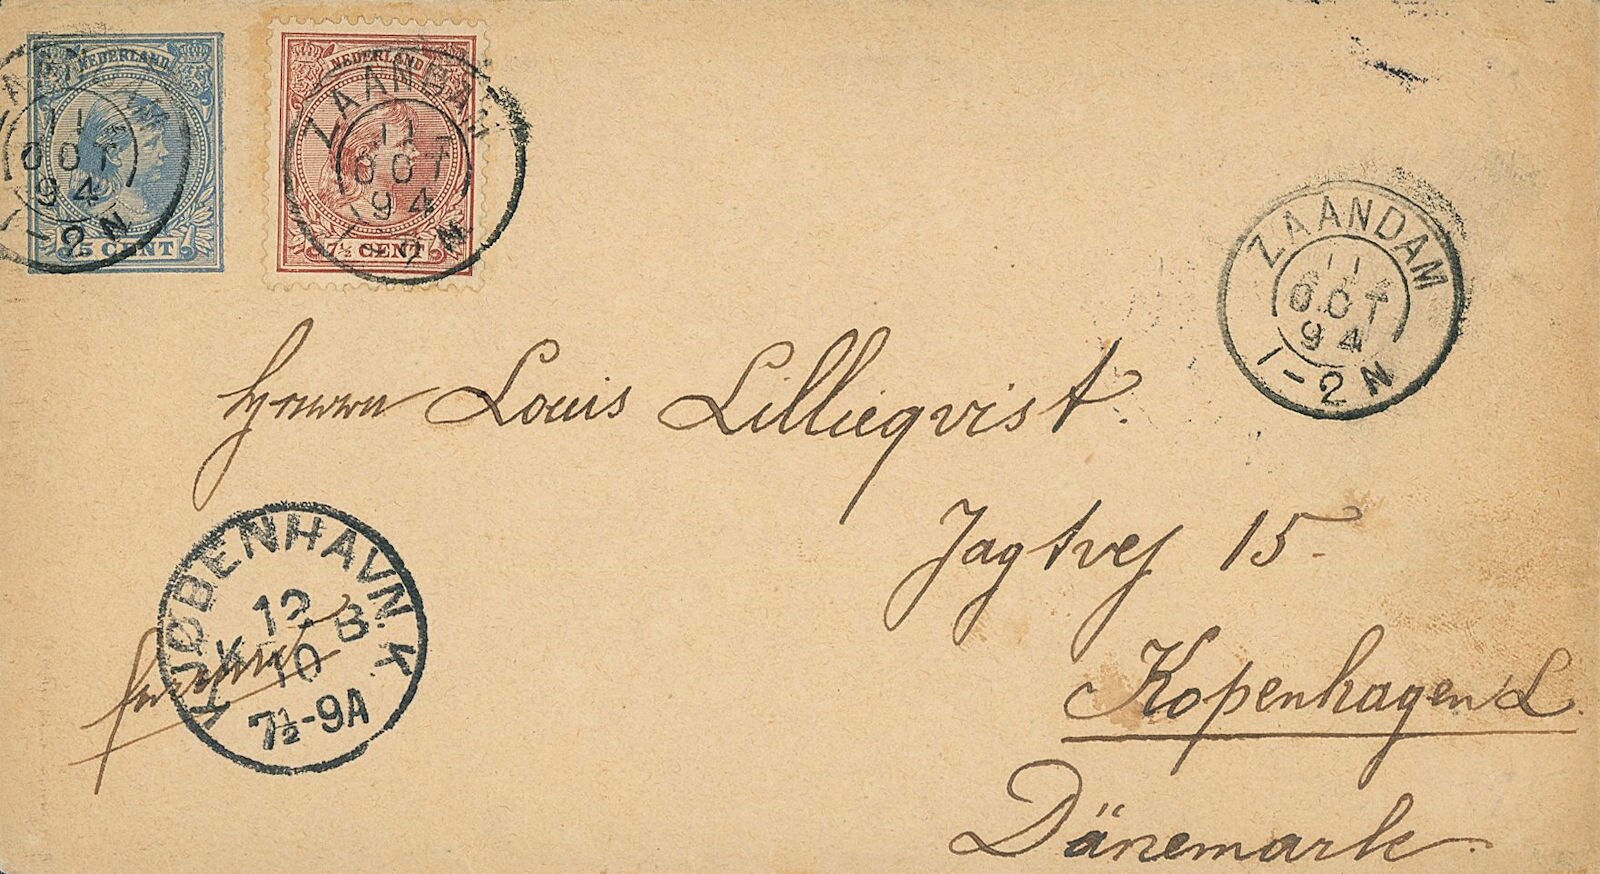 NEDERLAND
5 CENT
NEDERLAND
7½ CENT
ZAANDAM
11
OCT
94
1-2 N
ZAANDAM
11
OCT
94
1-2 N
ZAANDAM
11
OCT
94
1-2 N
Herrn Louis Lillieqvist.
Jagtvej 15.
Kopenhagen L.
Dänemark.
KJØBENHAVN. K
12
K 10 B.
7½-9A